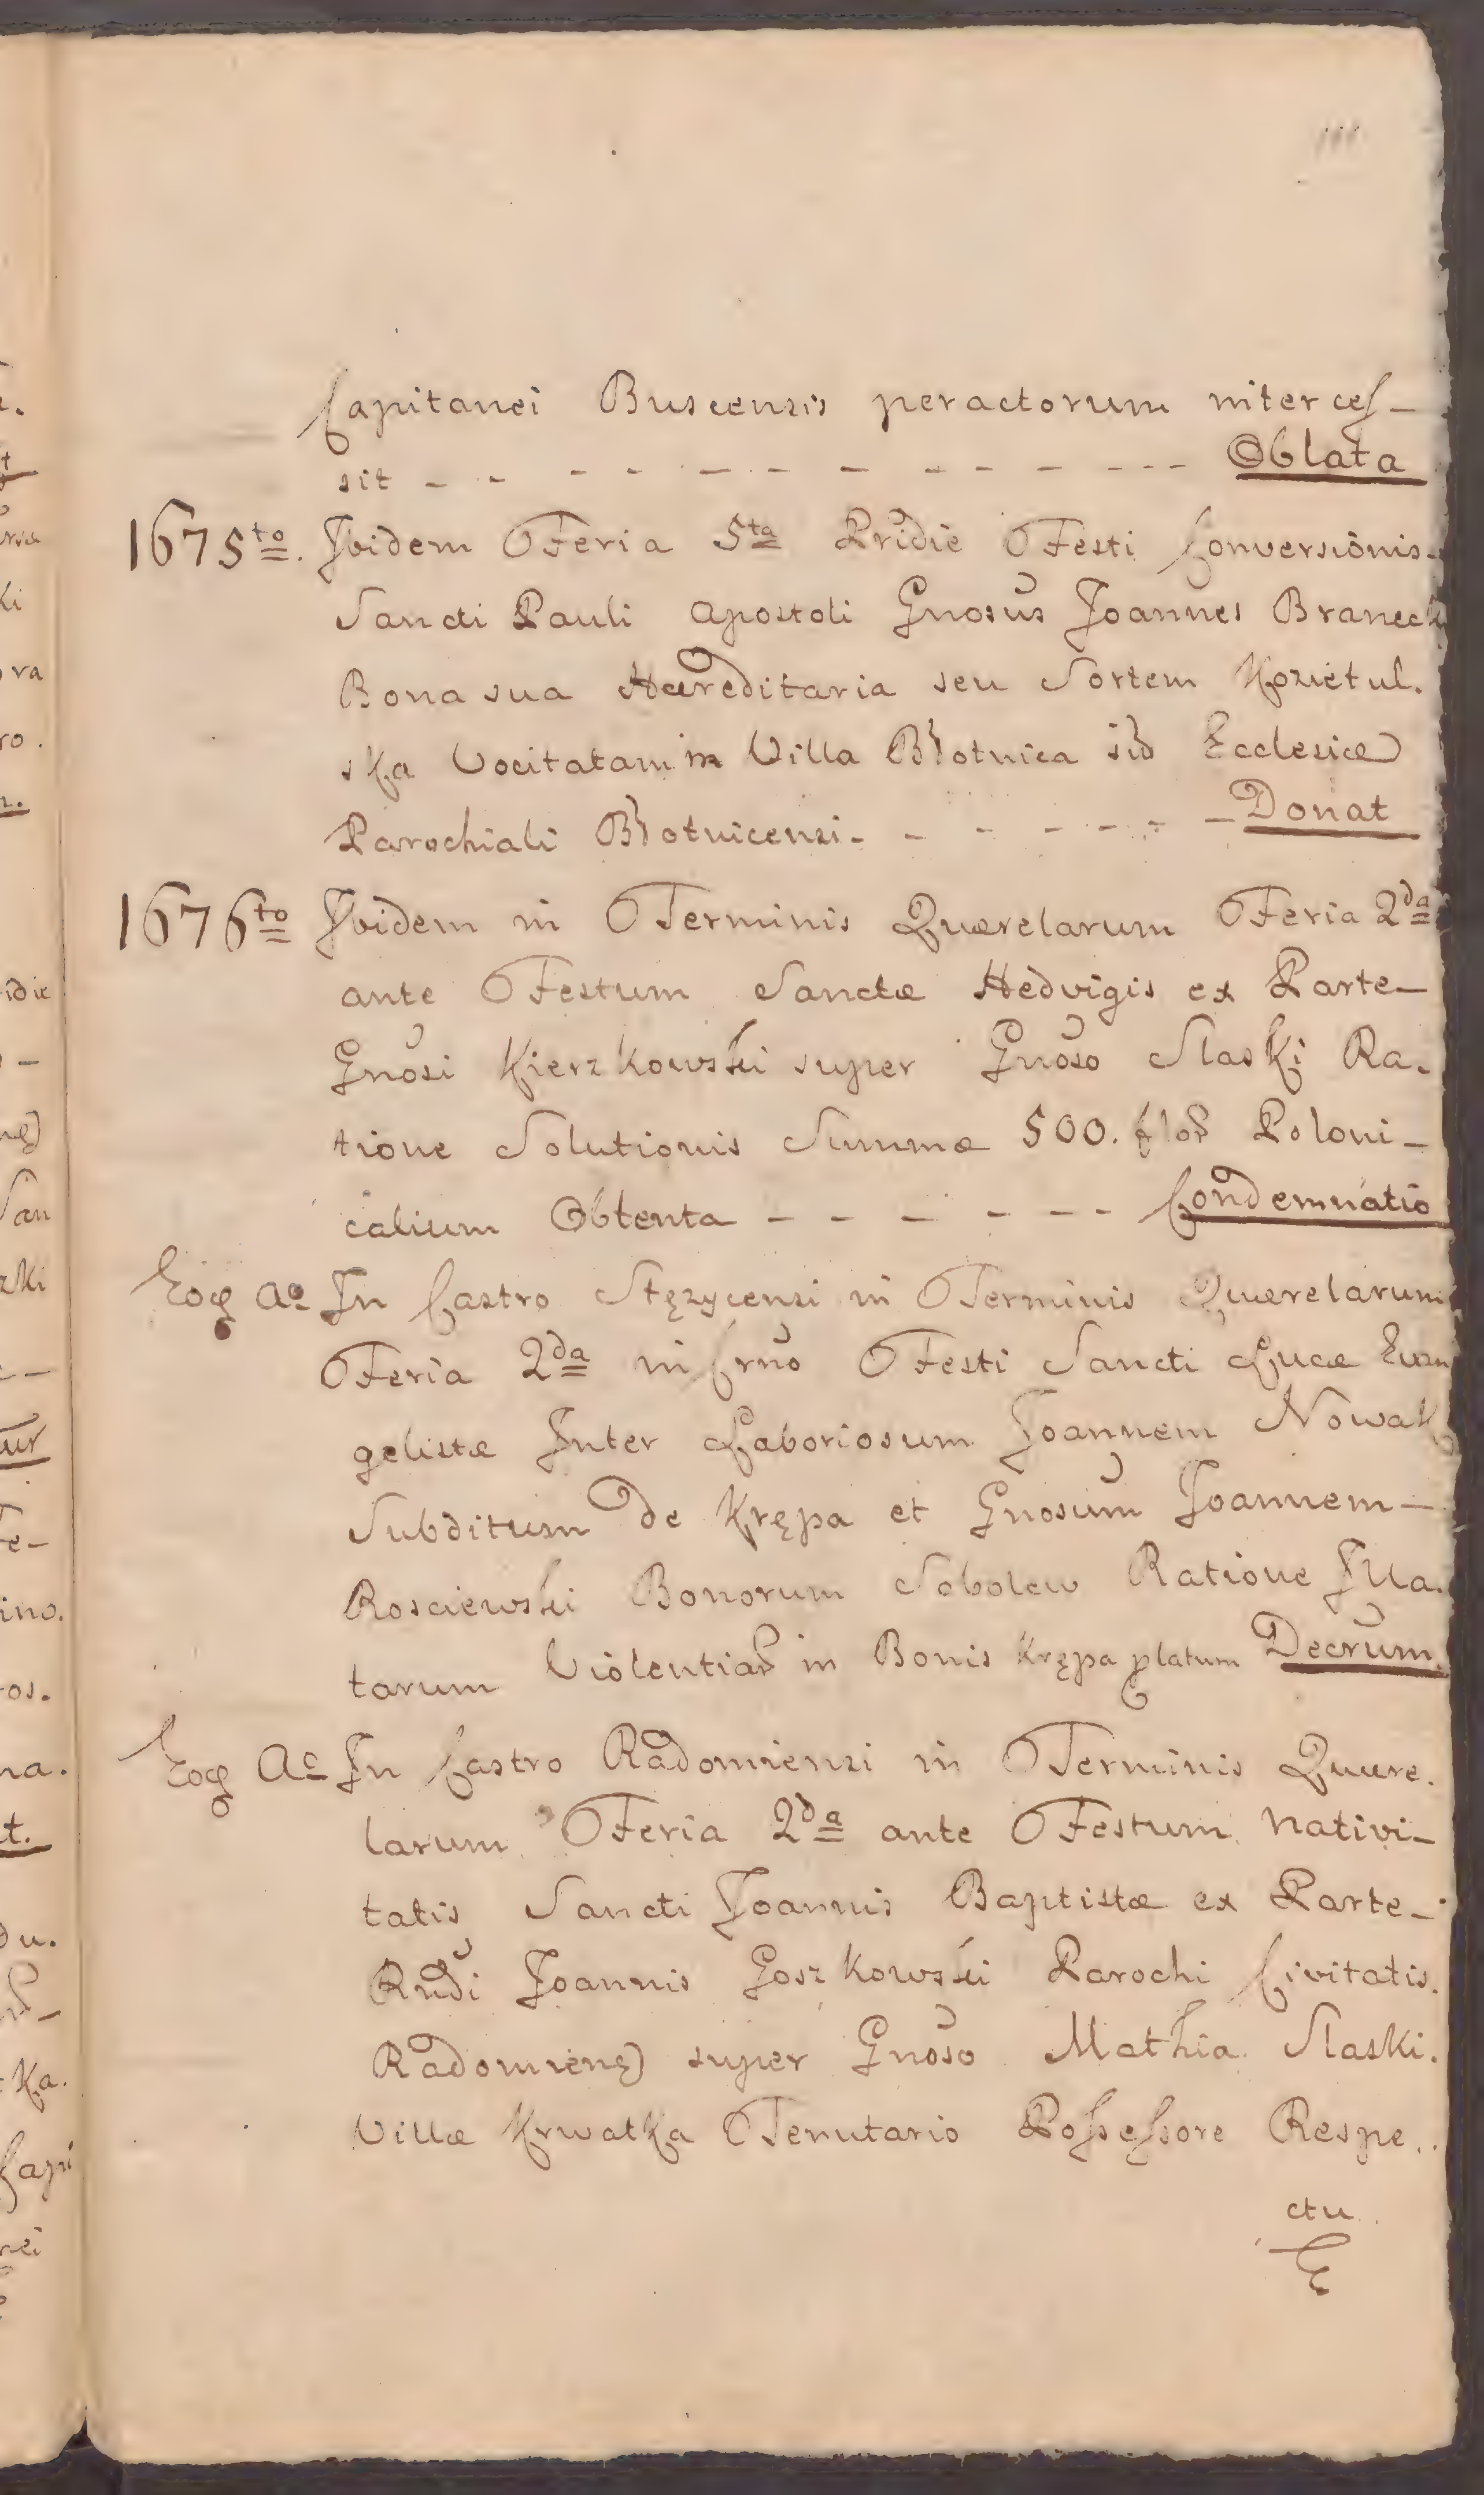 Capitanei Buscensis peractorum interces-
sit - - - - - - - - - - - - - Oblata
1675to. Ibidem Feria 5ta Pridie Festi Conversionis
Sancti Pauli Apostoli Gnosus Joannes Branecki
Bona sua Hæreditaria seu Sortem Kozietul.
ska Vocitatam in Villa Błotnica sib Ecclesiæ
Parochiali Błotnicensi - - - - - - - Donat
1676to Ibidem in Terminis Quærelarum Feria 2da
ante Festum Sanctæ Hedvigis ex Parte
Gnosi Kierzkowski super Gnoso Slaski Ra.
tione Solutionis Summæ 500. flor Poloni-
calium Obtenta - - - - - - Condemnatio
Eoq Ao In Castro Stężycensi in Terminis Quærelarum
Feria 2da in Crno Festi Sancti Lucæ Evan
gelistæ Inter Laboriosum Joannem Nowak
Subditum de Krępa et Gnosum Joannem
Rosciewski Bonorum Sobolew Ratione Illa.
tarum Violentiar in Bonis Krępa platum Decrum.
Eoq Ao In Castro Radomiensi in Terminis Quære.
larum Feria 2da ante Festum Nativi-
tatis Sancti Joannis Baptistæ ex Parte
Rndi Joannis Goszkowski Parochi Civitatis.
Radomieng super Gnoso Mathia Slaski.
Villæ Krwatka Tenutario Possessore Respe..
ctu